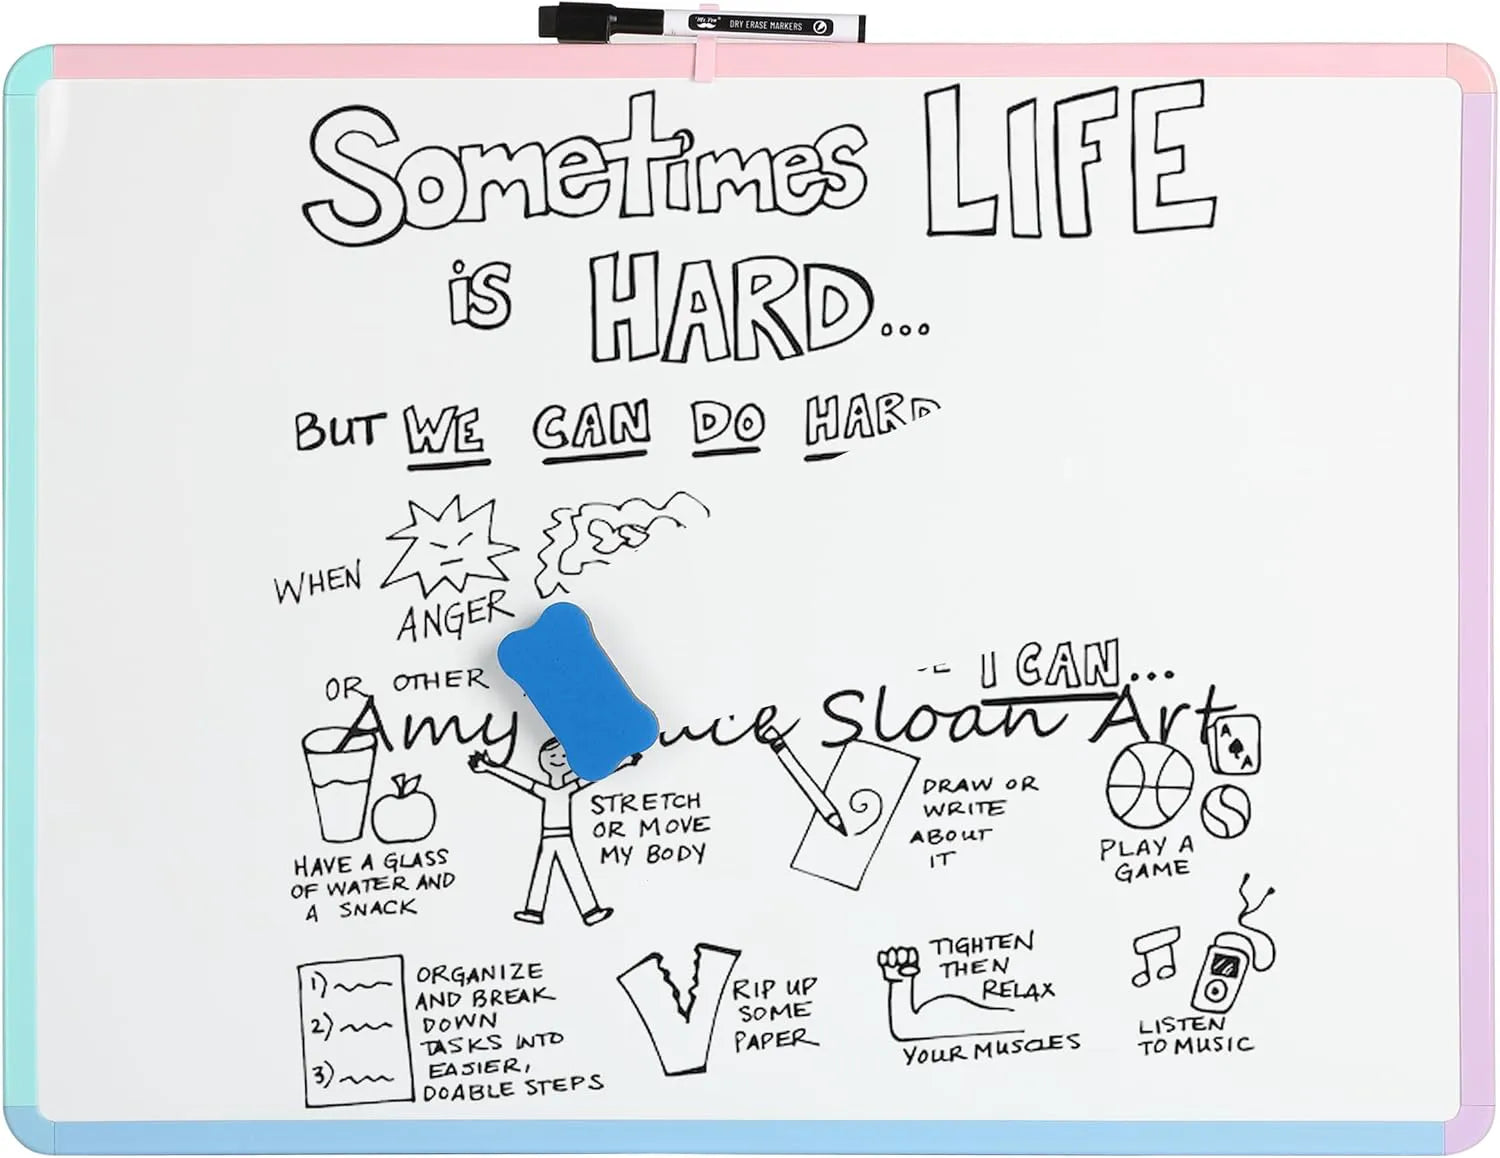 "Mr. Pen" DRY ERASE MARKERS
Sometimes LIFE
is HARD...
BUT WE CAN DO HARD
WHEN
ANGER
OR OTHER
I CAN...
Amy Sloan Art
A A
HAVE A GLASS
OF WATER AND
A SNACK
STRETCH
OR MOVE
MY BODY
DRAW OR
WRITE
ABOUT
IT
PLAY A
GAME
1)
2)
3)
ORGANIZE
AND BREAK
DOWN
TASKS INTO
EASIER,
DOABLE STEPS
RIP UP
SOME
PAPER
TIGHTEN
THEN
RELAX
YOUR MUSCLES
LISTEN
TO MUSIC